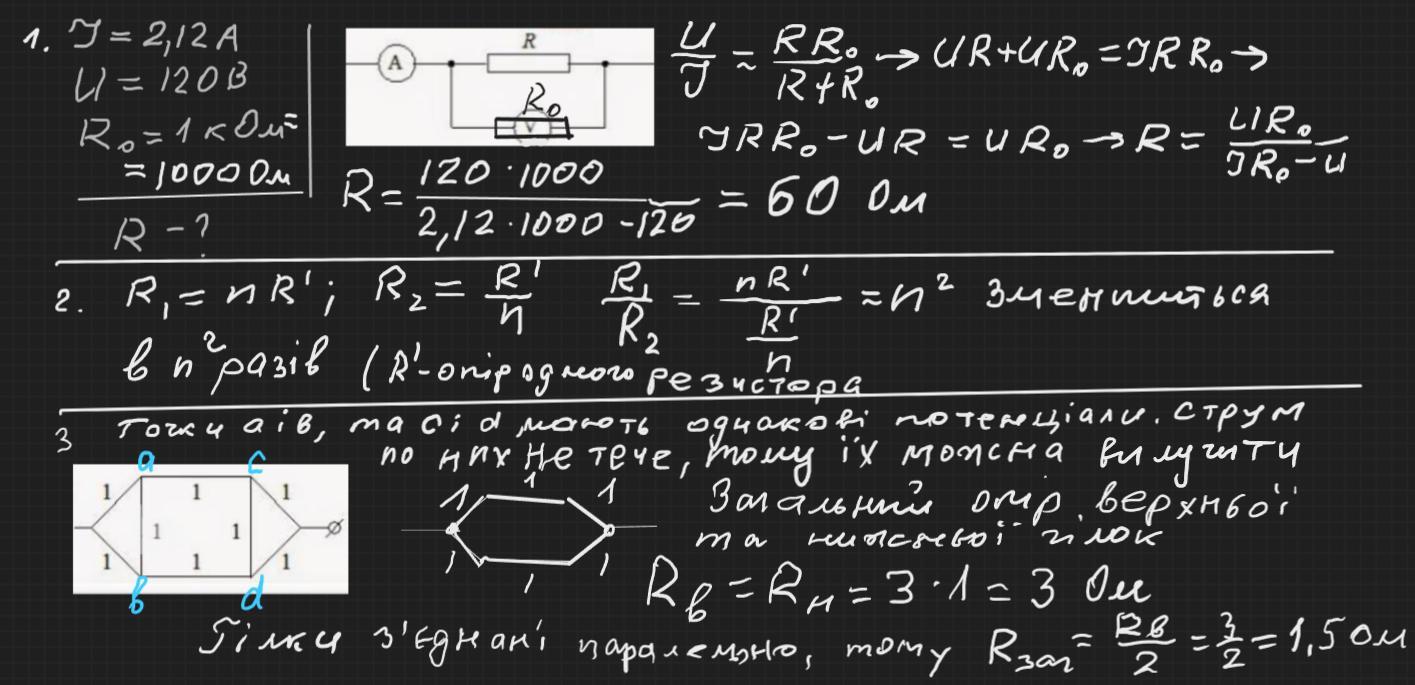 1. I = 2,12 A
U = 120 В
R₀ = 1 кОм =
= 1000 Ом
R - ?
A R R₀ V
U/I = RR₀/(R+R₀) → UR+UR₀ = IRR₀ →
IRR₀ - UR = UR₀ → R = UR₀/(IR₀-U)
R = 120·1000/(2,12·1000-120) = 60 Ом
2. R₁ = nR'; R₂ = R'/n R₁/R₂ = nR'/(R'/n) = n² Зменшиться
в n² разів (R'-опір одного резистора
3 Точки a і в, та c і d мають однакові потенціали. Струм
по них не тече, тому їх можна вилучити
a c
1 1 1
1 1
1 1 1
в d
1 1 1
1 1 1
Загальний опір верхньої
та нижньої гілок
Rв = Rн = 3·1 = 3 Ом
Гілки з'єднані паралельно, тому Rзаг = Rв/2 = 3/2 = 1,5 Ом